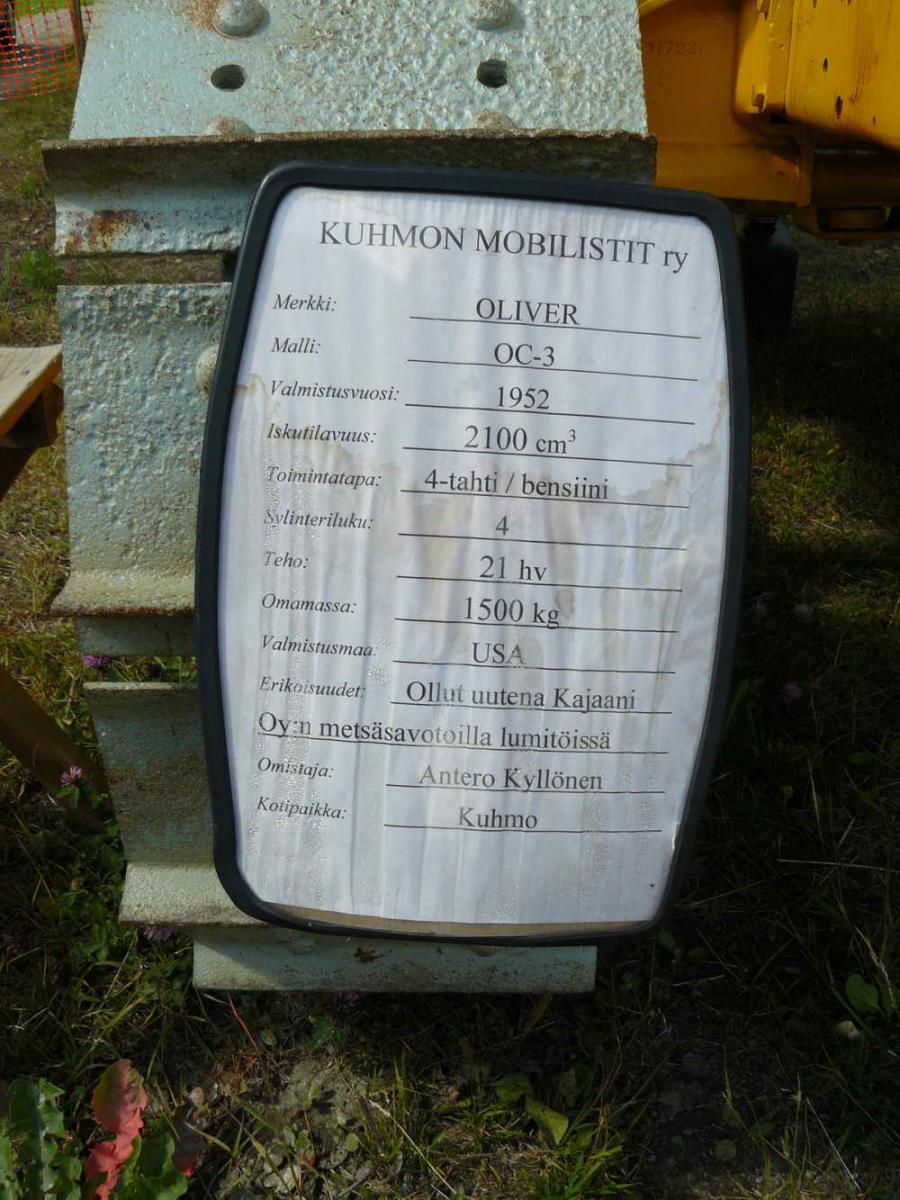 KUHMON MOBILISTIT ry
Merkki: OLIVER
Malli: OC-3
Valmistusvuosi: 1952
Iskutilavuus: 2100 cm³
Toimintatapa: 4-tahti / bensiini
Sylinteriluku: 4
Teho: 21 hv
Omamassa: 1500 kg
Valmistusmaa: USA
Erikoisuudet: Ollut uutena Kajaani
Oy:n metsäsavotoilla lumitöissä
Omistaja: Antero Kyllönen
Kotipaikka: Kuhmo